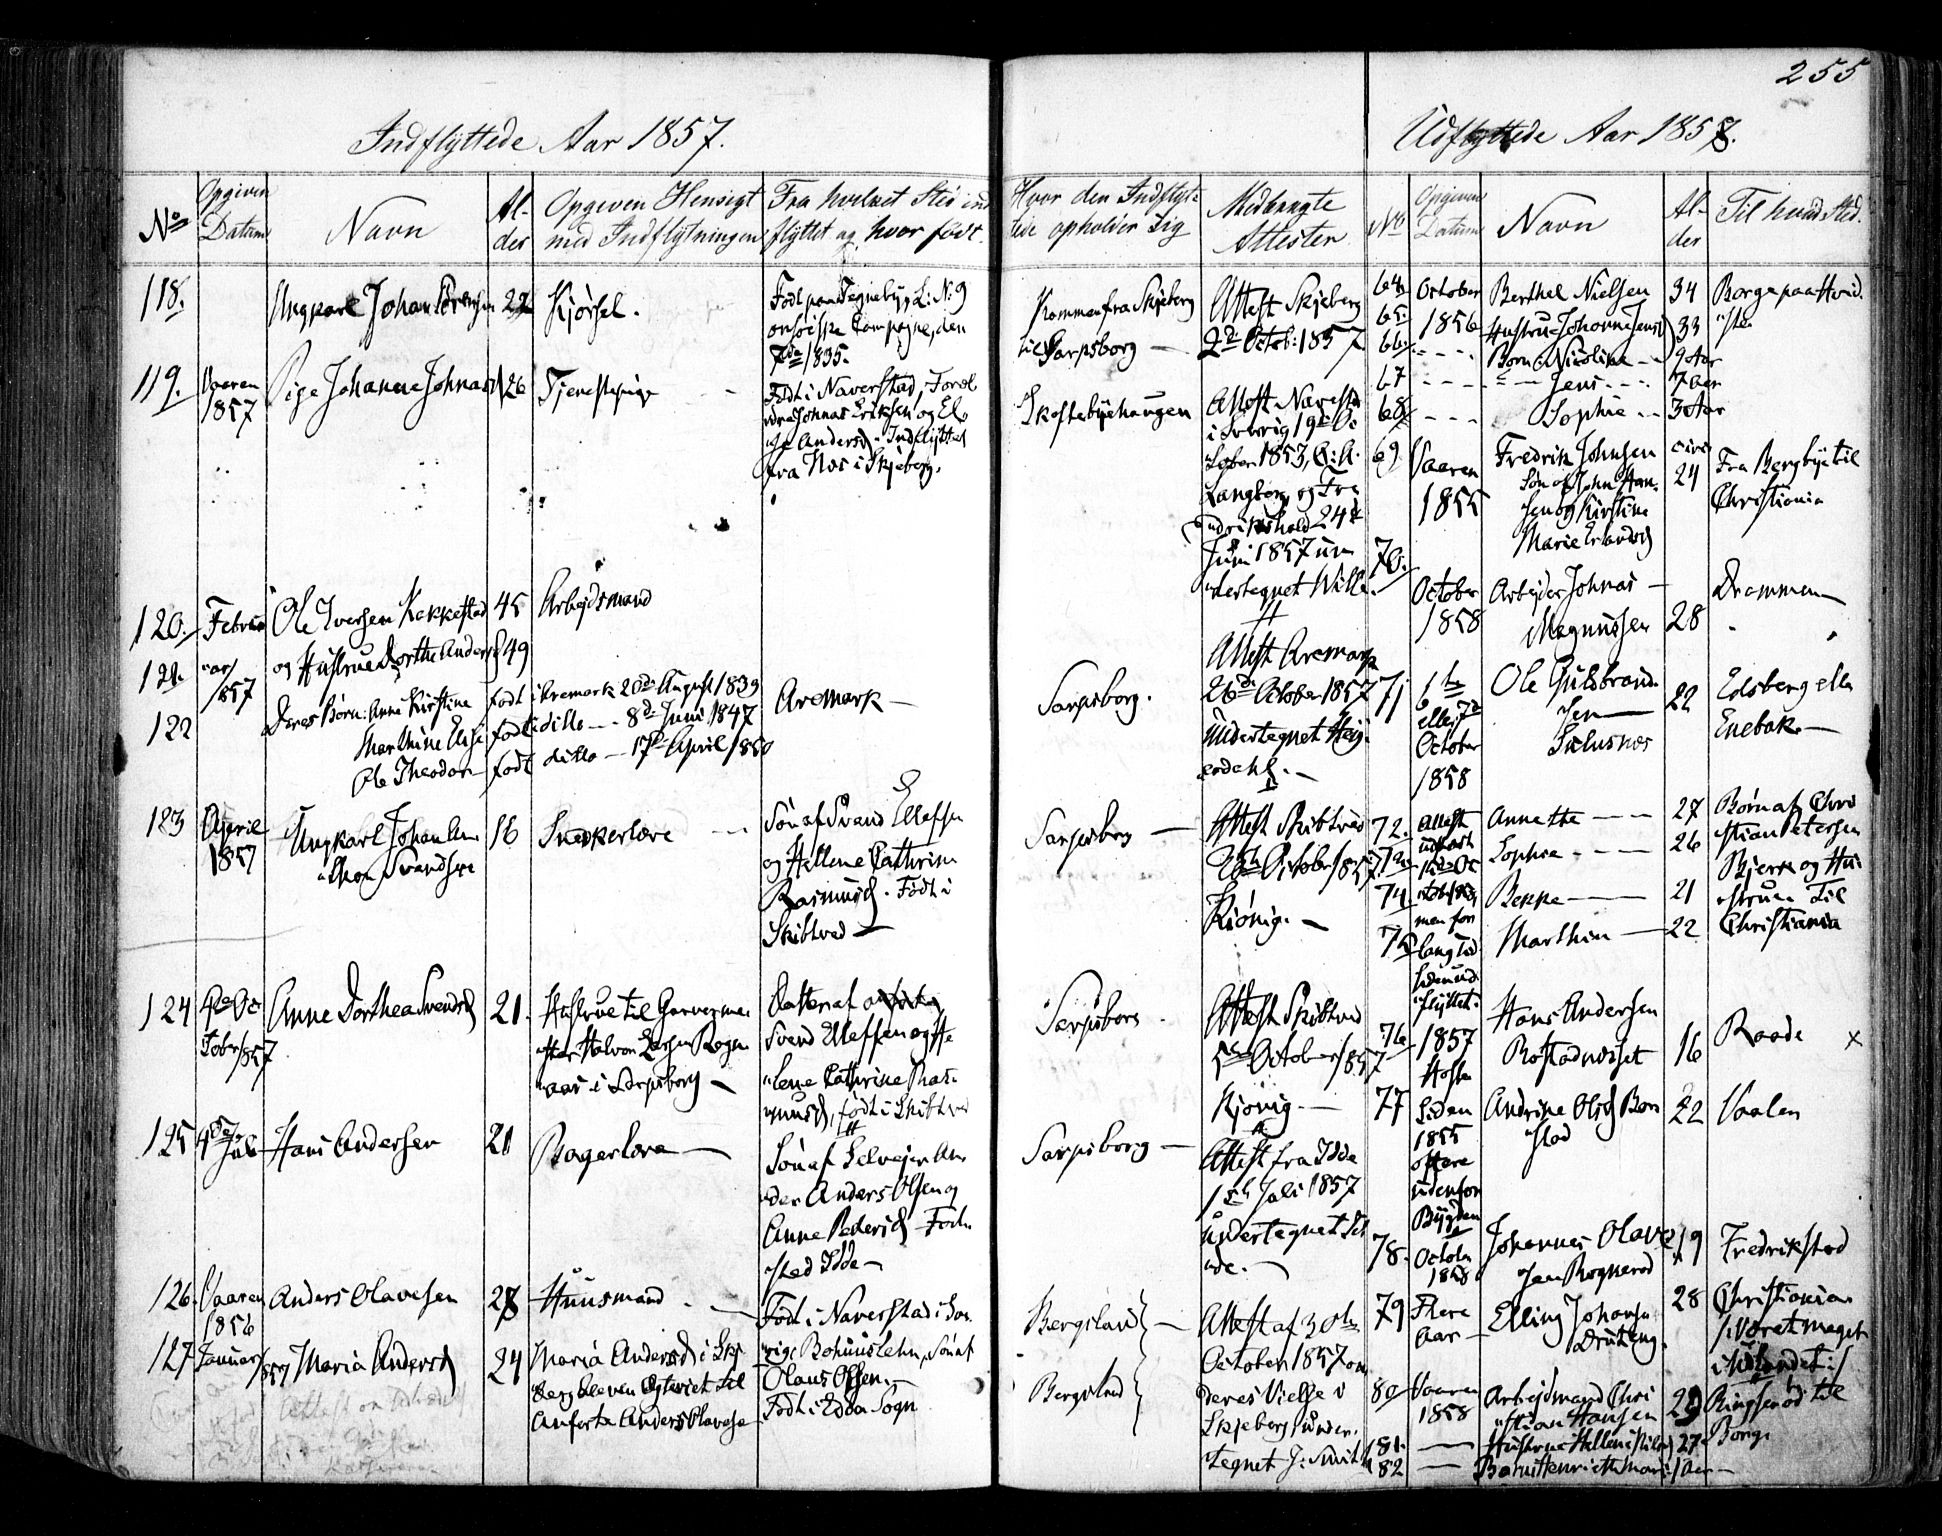 255
Indflyttede Aar 1857.
No
Opgiven Datum
Navn
Al-
der
Opgiven Hensigt
med Indflytningen
Fra hvilket Sted ind
flyttet og hvor født.
Hvor den Indflyt-
tede opholder sig
Medbragte
Attester
118.
Ungkarl Johan Sörensen
22
Kjørsel.
Født paa Tegneby, L: N: 9
Compagne, den
7de 1835.
Kommen fra Skjeberg
til Sarpsborg —
Attest Skjeberg
2den Octob: 1857
119.
Vaaren
1857
Pige Johanne Johnasd
26
Tjenestepige
Født i Naverstad, Foræl
dre Johnas Eriksen og El
Andersd. Indflyttet
fra Hos i Skjeberg.
Skoftebyehaugen
Attest Naversta
i Sverrig 19de Oc
tober 1853,
Langberg og Fre
drikshald 24de
Juni 1857 un
dertegnet Wille.
120.
Febru
ar/
1857
Ole Iversen Kekkestad
45
Arbejdsmand
121.
og Hustrue Dorthe Andersd
49
122
Deres Børn: Anne Kirstine født i Aremark 20de August 1839
Marthine Elise født i ditto — 8de Juni 1847
Ole Theodor — født ditto — 17de April 1850
Aremark —
Sarpsborg.
Attest Aremark
26de October 1857
Undertegnet Hey
erdahl. —
123
April
1857
Ungkarl Johan An
thon Svendsen
16
Snedkerlære —
Søn af Svend Ellefsen
og Hellene Cathrine
Rasmusd. Født i
Skibtved —
Sarpsborg —
Attest Skibtved
26de October 1857.
Kiönig. —
124
October 1857
Anne Dorthea Svendsd
21.
Hustrue til Garverme
ster Halvor Larsen Rogn
aas i Sarpsborg —
Datter af
Svend Ellefsen og He
lene Cathrine Ras
musd, født i Skibtved
Sarpsborg.
Attest Skibtved
5de October 1857
Kjönig. —
125
4de
Juli
Hans Andersen
21
Bagerlære —
Søn af Selvejer An
der Anders Olsen og
Anne Pedersd. Føde
sted Idde —
Sarpsborg —
Attest fra Idde
1ste Juli 1857
undertegnet
126.
Vaaren
1856
Anders Olavesen
28
Huusmand. —
Født i Naverstad i Sve
rige Bohuuslehn, Søn af
Olaus Olsen. —
Bergsland —
Attest af 30te
October 1857 om
deres Vielse i
Skjeberg under
tegnet J: Smith
127.
Januar/
1857
Maria Andersd
24
Maria Andersd i Skj
berg bleven Egteviet til
anførte Anders Olavesen
Født i Edda Sogn
Bergsland
Udflyttede Aar 1858.
No
Opgiven Datum
Navn
Al-
der
Til hvad Sted.
64.
October
Berthel Nielsen
34
Borge paa Hvid
sten
65.
1856
Hustrue Johanne Jensd
33
66.
Børn: Nicoline —
9 Aar
67
Jens —
7 Aar
68
Sophie —
3 Aar
69
Vaaren
1855
Fredrik Johnsen
Søn af John Han
sen og Kirstine
Marie Erlandsd
circa
24
Fra Bergbye til
Christiania
70.
October
1858
Arbejder Johnas —
Magnussen
28
Drammen —
71
6te
eller 7de
October
1858
Ole Guldbrand
sen —
Sælusnæs
22
Edsberg eller
Enebak —
72.
Attest
udstædt
12te Oc
tob 1858,
men for
lang tid
siden ud
flyttet.
Annette —
27
Børn af Chri
stian Petersen
Bjerk og Hu
strue til
Christiania
73.
Sophie —
26
74.
Beppe —
21
75
Marthine —
22
76
1857
Høsten
Hans Andersen
Rostadnæsset
16
Raade
×
77
Siden
1855
oftere
udenfor
Bygden
Andrine Olsd Bor
stad
22
Vaalen
78.
October
1858
Johannes Olave
sen Rognerød
19
Fredrikstad
79
Flere
Aar —
Elling Johansen
Drueng.
28
Christiania
/: Været meget
i Udlandet :/
80
Vaaren
1858
Arbejdsmand Chri
stian Hansen
29
Ringserød til
Borge
81.
—
Hustrue Hellene Nilsd
27
82
—
Barn Henriette Marie
1 Aar —